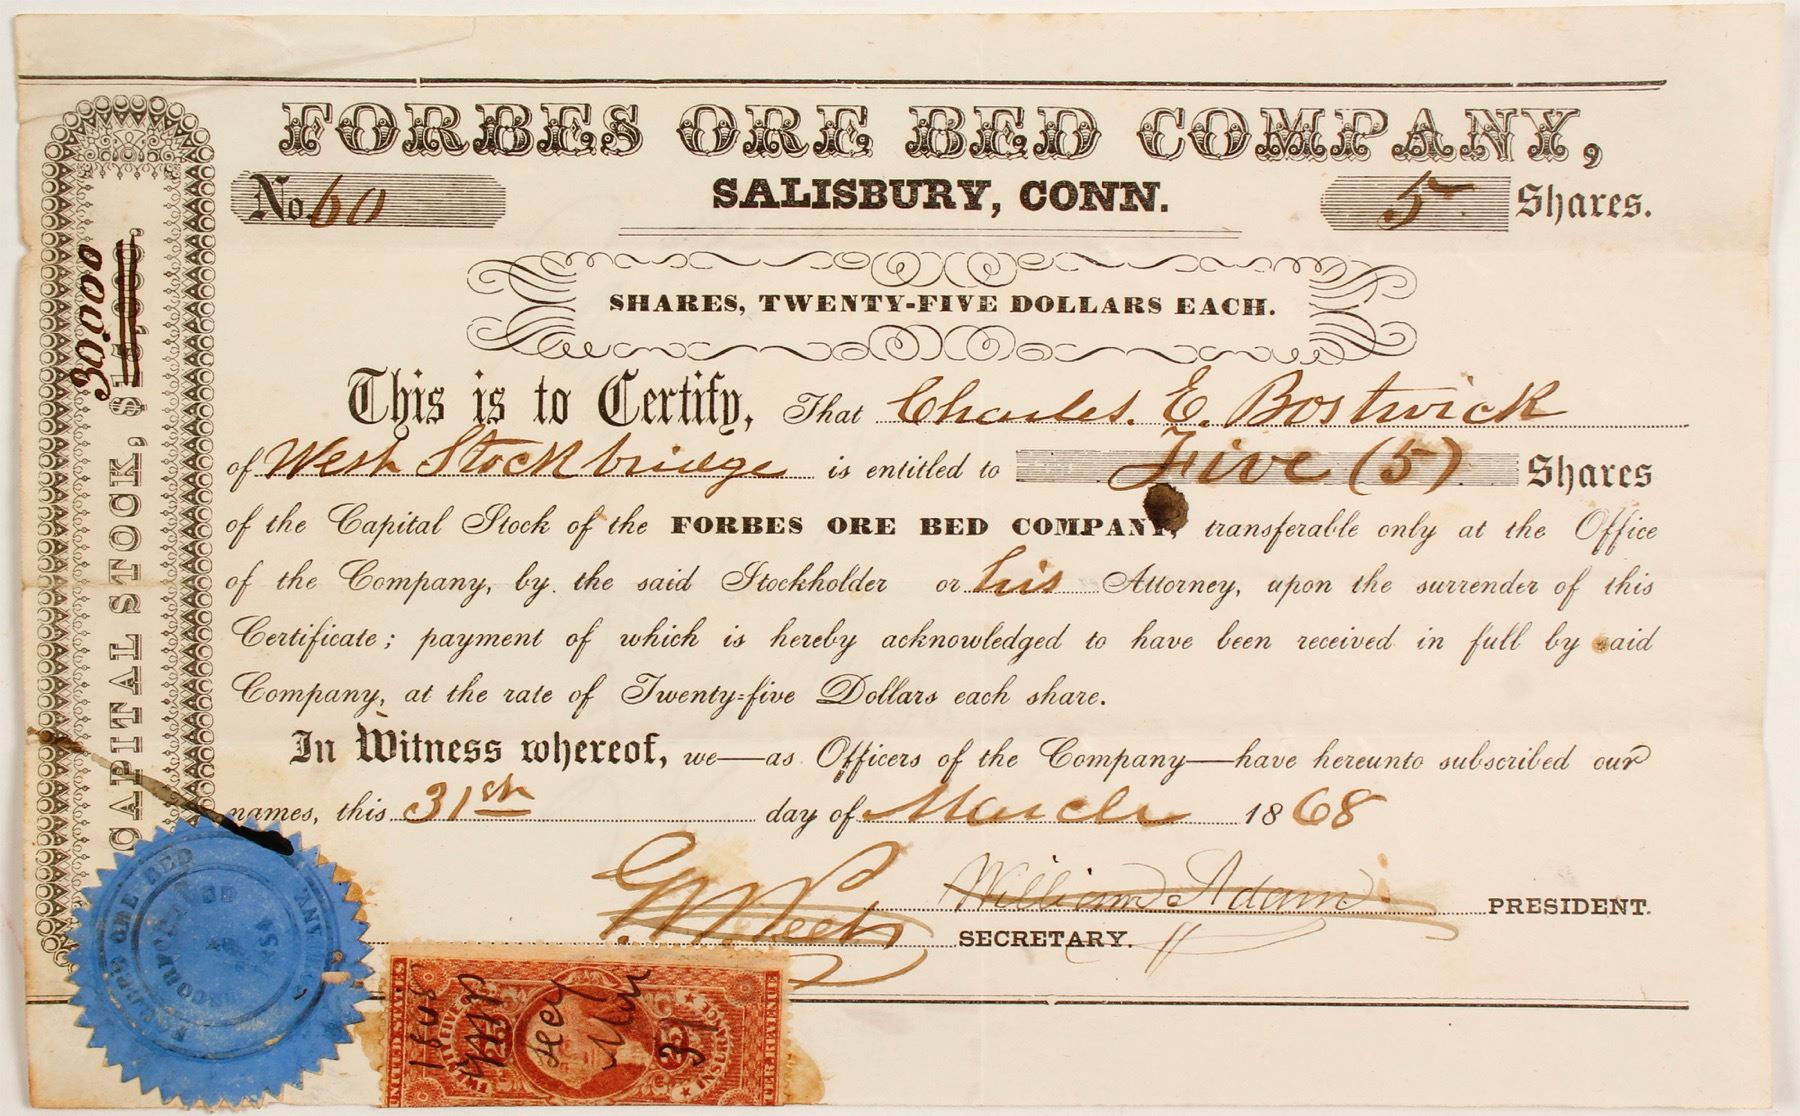 FORBES ORE BED COMPANY,
No. 60
SALISBURY, CONN.
5 Shares.
SHARES, TWENTY-FIVE DOLLARS EACH.
CAPITAL STOCK, $
30,000
This is to Certify, That Charles. E. Bostwick
of West Stockbridge is entitled to Five (5) Shares
of the Capital Stock of the FORBES ORE BED COMPANY, transferable only at the Office
of the Company, by the said Stockholder or his Attorney, upon the surrender of this
Certificate; payment of which is hereby acknowledged to have been received in full by said
Company, at the rate of Twenty-five Dollars each share.
In Witness whereof, we—as Officers of the Company—have hereunto subscribed our
names, this 31st day of March 1868
William Adam PRESIDENT.
SECRETARY.
FORBES ORE BED COMPANY
INCORPORATED
UNITED STATES
TWENTY FIVE
25
INSURANCE
INTER. REVENUE
1868
Secy
Mar
31